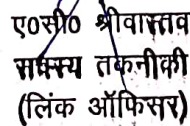 ए०सी० श्रीवास्तव
सदस्य तकनीकी
(लिंक ऑफिसर)